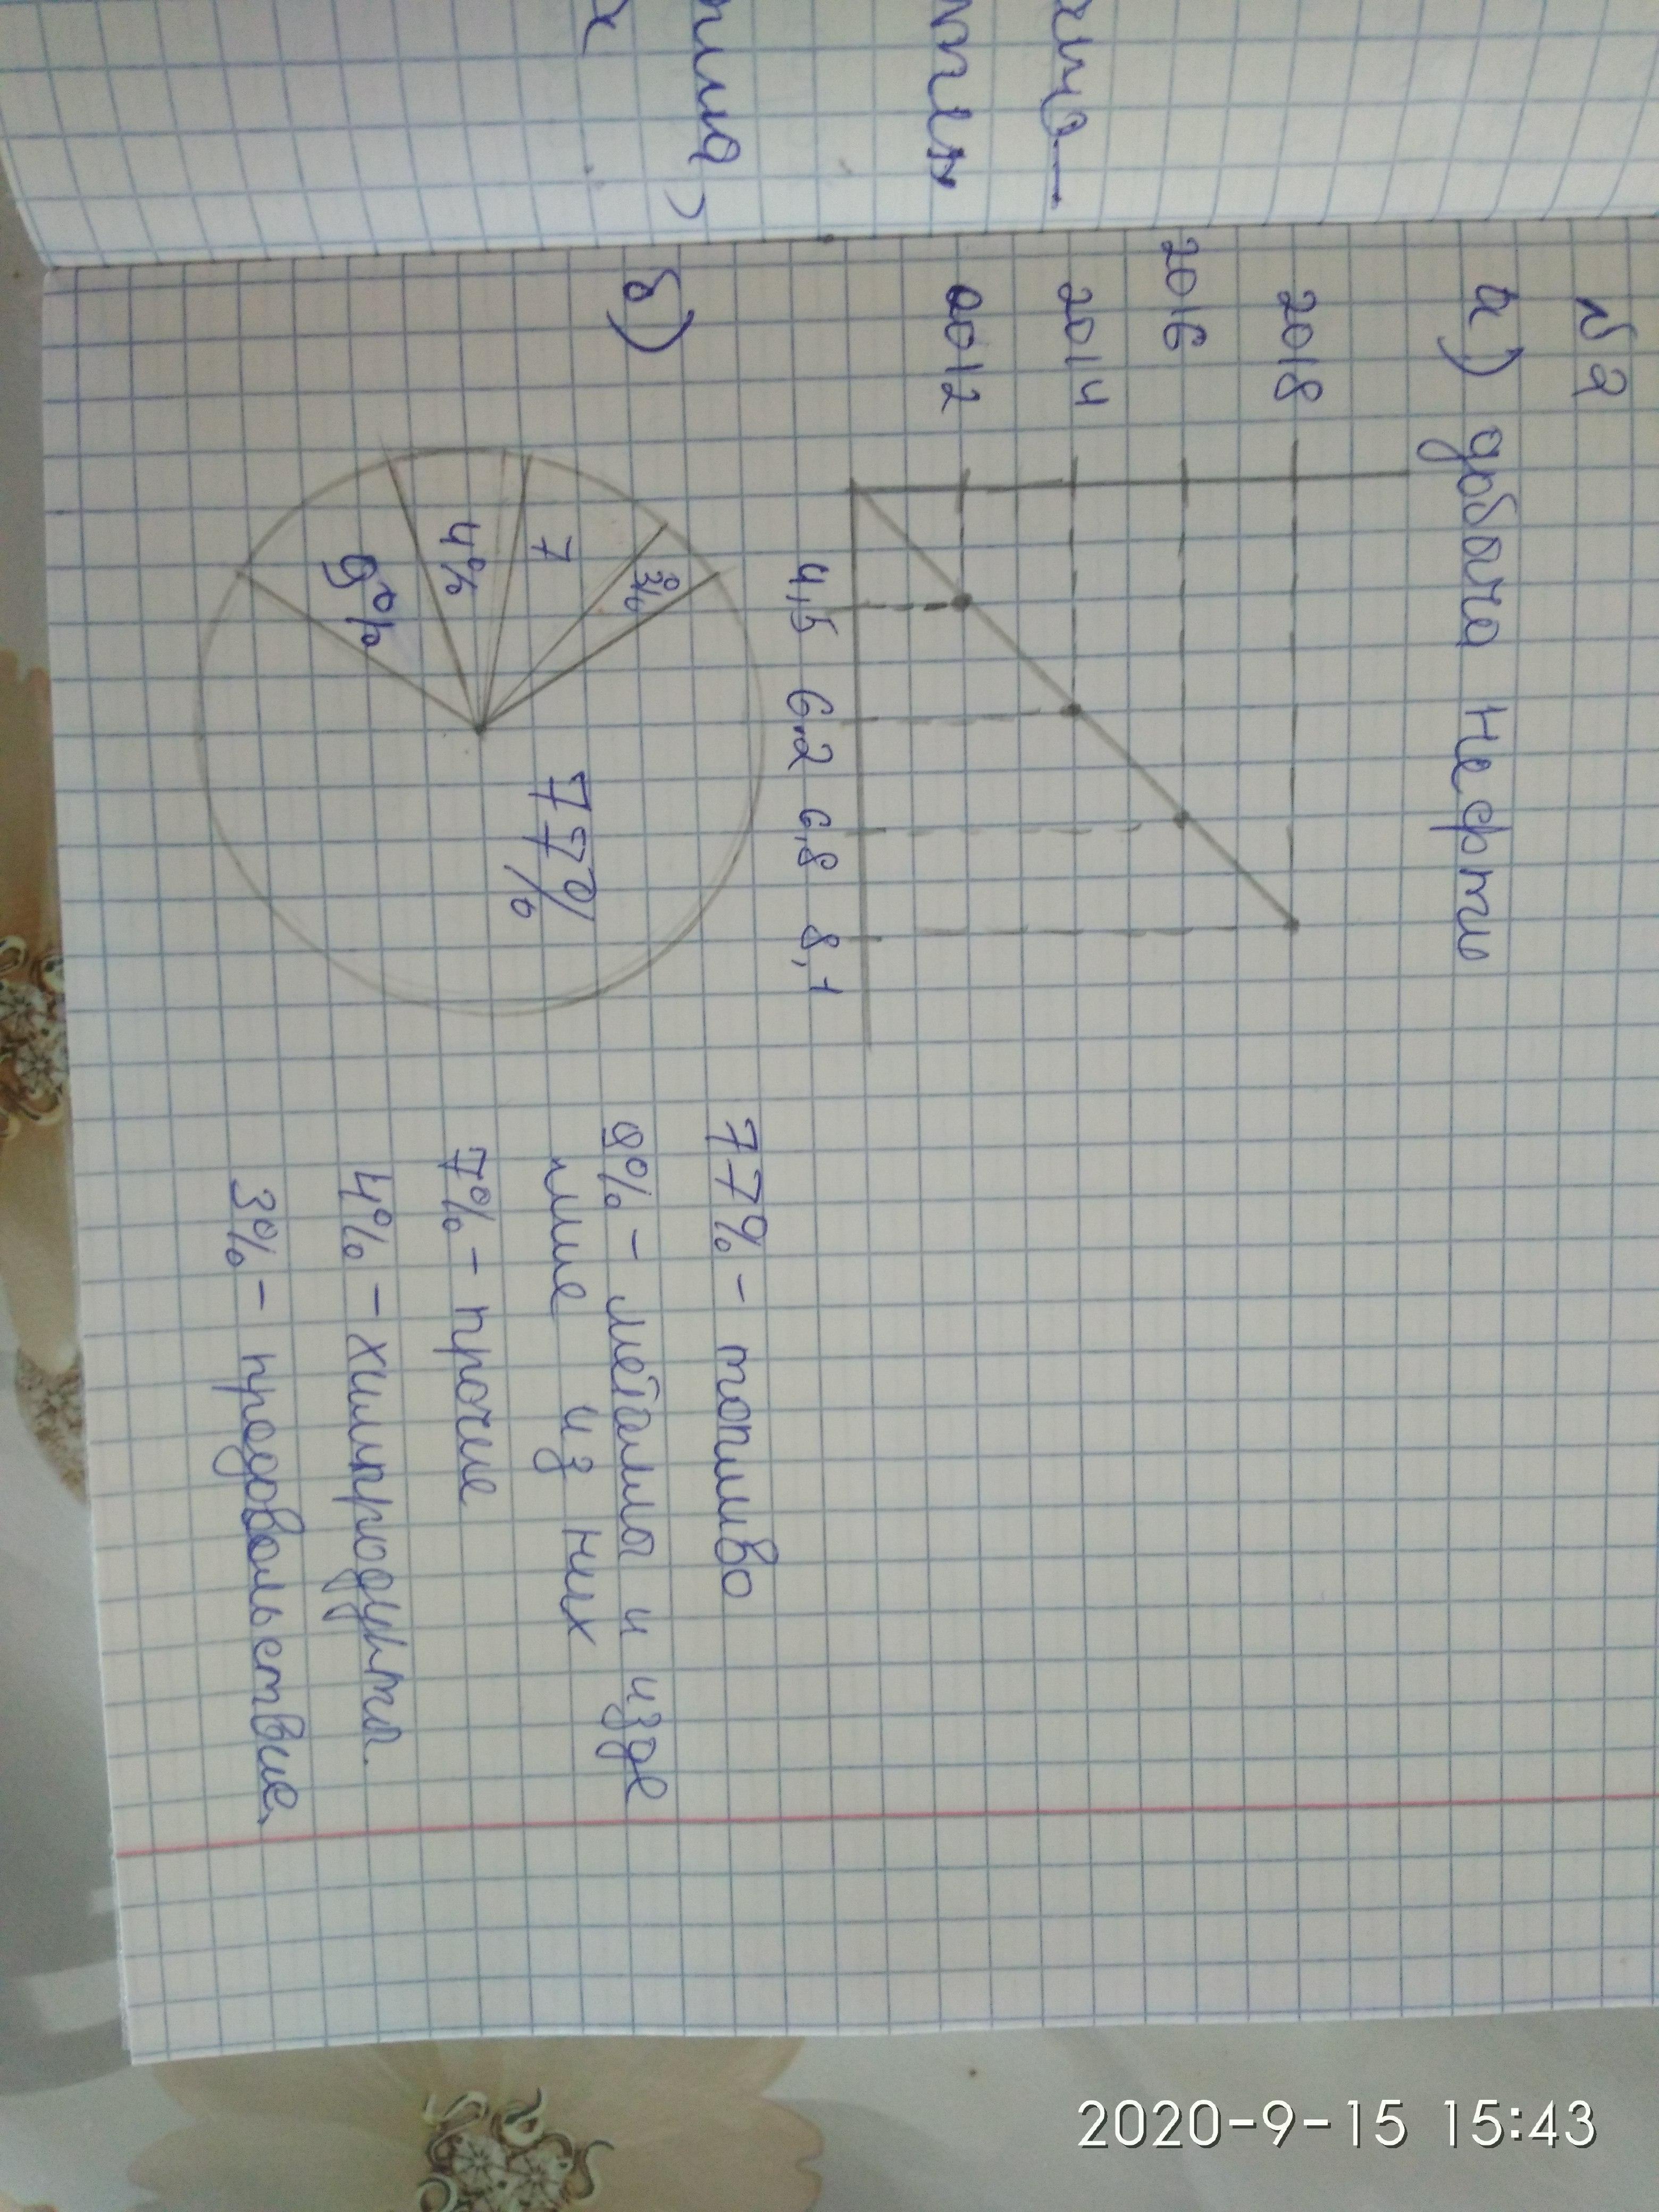 №2
а) добыча нефти
2018
2016
2014
2012
4,5 6,2 6,8 8,1
б)
3%
7
4%
9%
77%
77% - топливо
9% - металлы и изде
лие из них
7% - прочие
4% - химпродукты.
3% - продовольствие.
2020-9-15 15:43